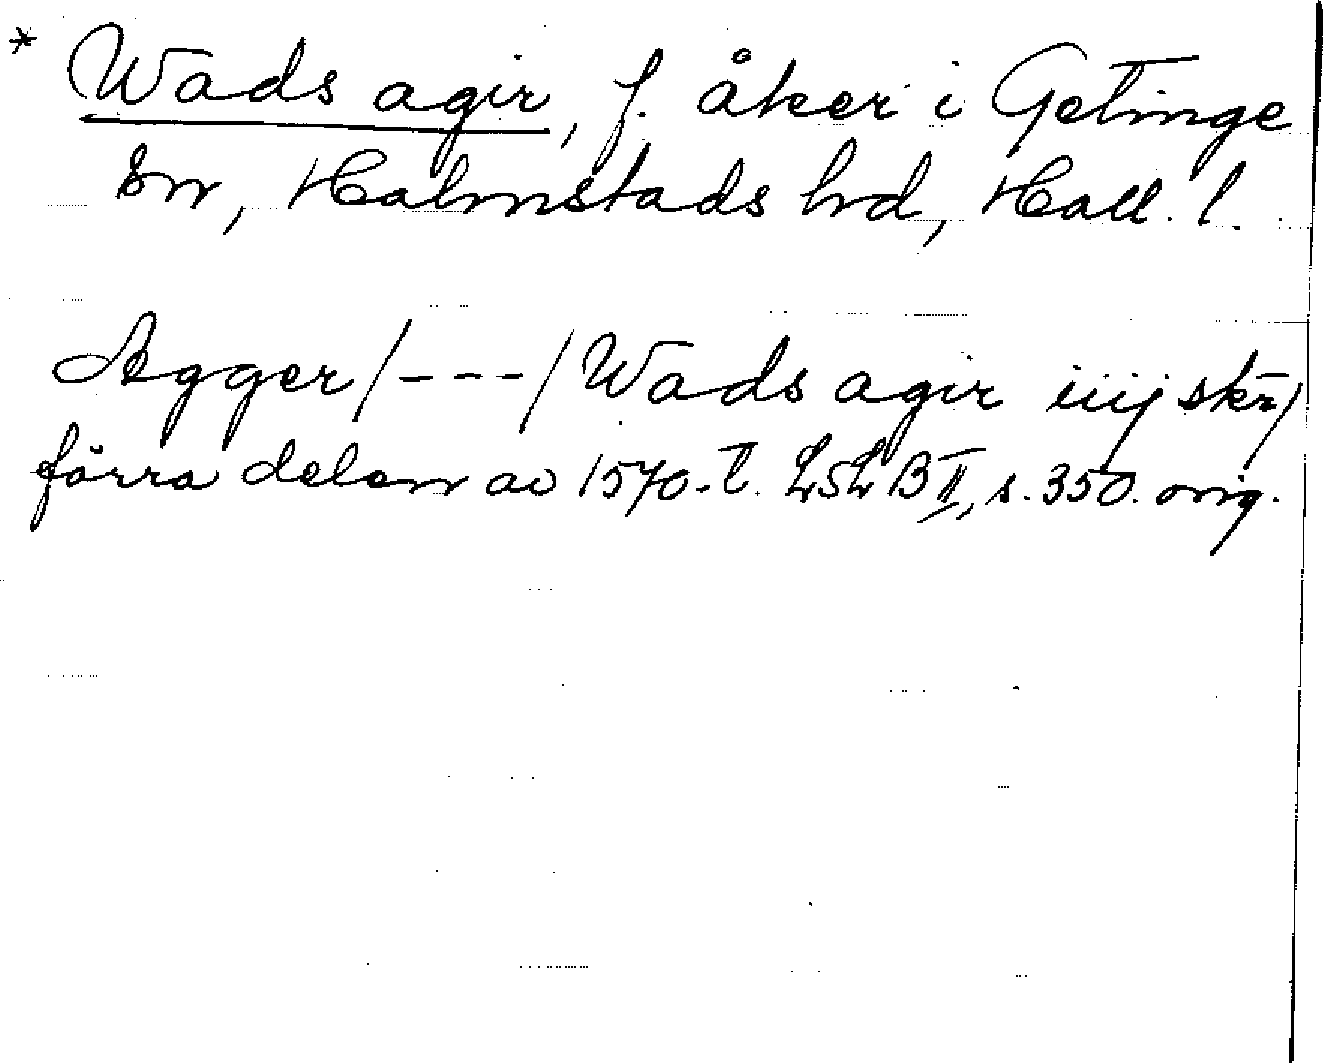 * Wads agir, f. åker i Getinge
sn, Halmstads hrd, Hall. l.
Agger/---/Wads agir iiij skr̄/
förra delen av 1570-t. LSLB II, s. 350. orig.